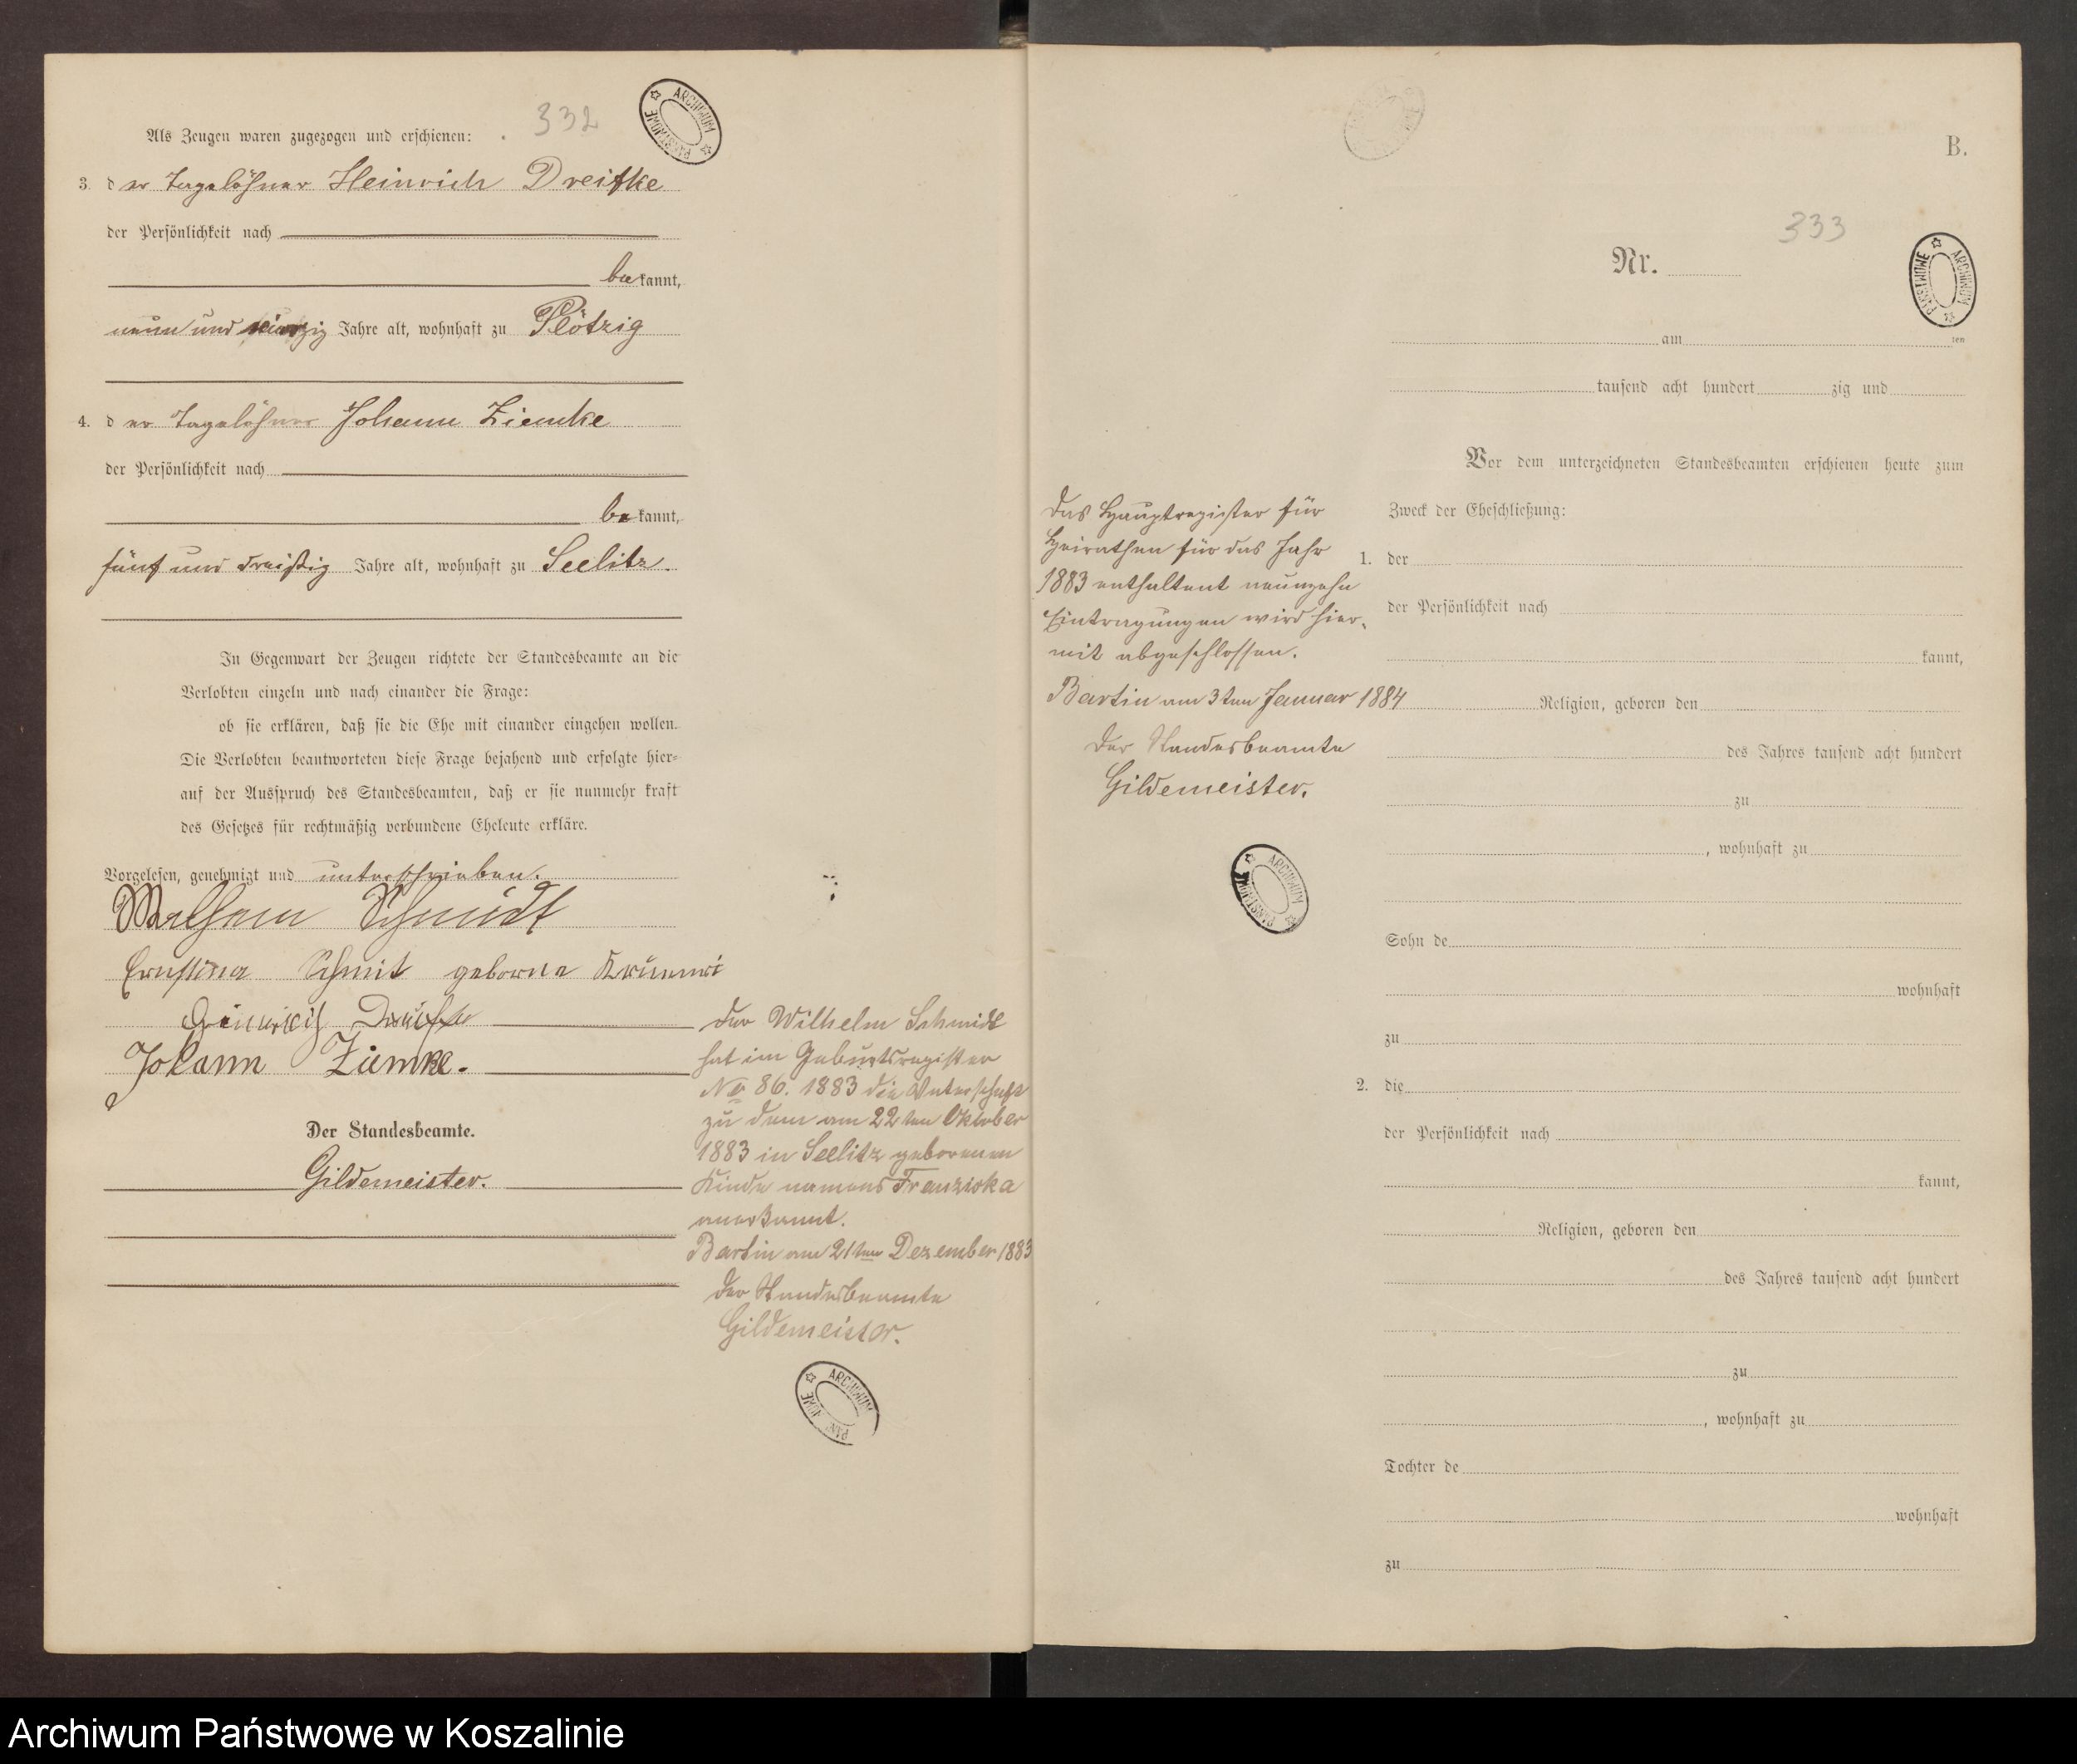 332
Als Zeugen waren zugezogen und erschienen:
3. der Tagelöhner Heinrich Dreifke
der Persönlichkeit nach
bekannt,
neun und zig Jahre alt, wohnhaft zu Plötzig
4. der Tagelöhner Johann Ziemke
der Persönlichkeit nach
bekannt,
fünf und dreißig Jahre alt, wohnhaft zu Seelitz.
In Gegenwart der Zeugen richtete der Standesbeamte an die
Verlobten einzeln und nach einander die Frage:
ob sie erklären, daß sie die Ehe mit einander eingehen wollen.
Die Verlobten beantworteten diese Frage bejahend und erfolgte hier-
auf der Ausspruch des Standesbeamten, daß er sie nunmehr kraft
des Gesetzes für rechtmäßig verbundene Eheleute erkläre.
Vorgelesen, genehmigt und unterschrieben.
Wilhem Schmidt
Ernstina Schmit geborne
Heinrich
Johann Ziemke.
Der Standesbeamte.
Gildemeister.
Der Wilhelm Schmidt
hat im Geburtsregister
No 86. 1883 die Vaterschaft
zu dem am 22ten Oktober
1883 in Seelitz geborenen
Kinde namens Franziska
anerkannt.
Bartin am 21ten Dezember 1883
Der Standesbeamte
Gildemeister.
ARCHIWUM PAŃSTWOWE
B.
333
Nr.
am ten
tausend acht hundert zig und
Vor dem unterzeichneten Standesbeamten erschienen heute zum
Zweck der Eheschließung:
1. der
der Persönlichkeit nach
kannt,
Religion, geboren den
des Jahres tausend acht hundert
zu
, wohnhaft zu
Sohn de
wohnhaft
zu
2. die
der Persönlichkeit nach
kannt,
Religion, geboren den
des Jahres tausend acht hundert
zu
, wohnhaft zu
Tochter de
wohnhaft
zu
Das Hauptregister für
Heirathen für das Jahr
1883 enthaltent neunzehn
Eintragungen wird hier-
mit abgeschlossen.
Bartin am 3ten Januar 1884
Der Standesbeamte
Gildemeister.
Archiwum Państwowe w Koszalinie